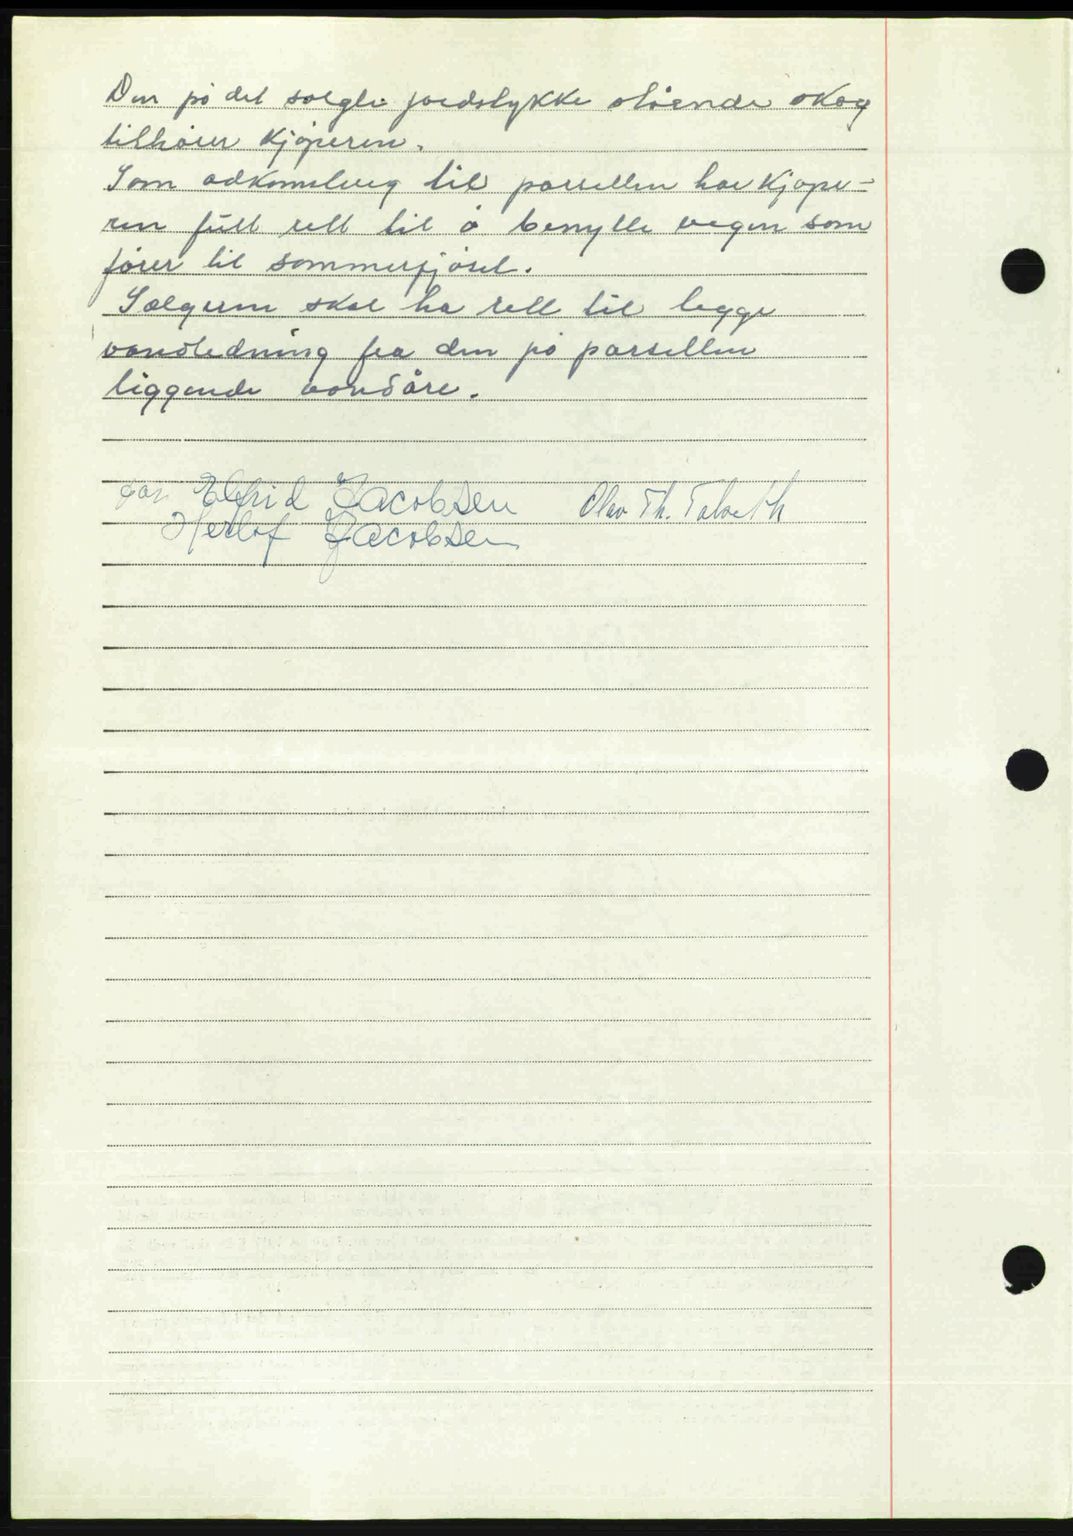 Den på det solgte jordstykke stående skog
tilhører kjøperen.
Som adkomstveg til parsellen har kjøpe-
ren full rett til å benytte vegen som
fører til sommerfjöset.
Selgeren skal ha rett til legge
vandledning fra den på parsellen
liggende vandåre.
for Elfrid Jacobsen Olav Th.
Herlof Jacobsen